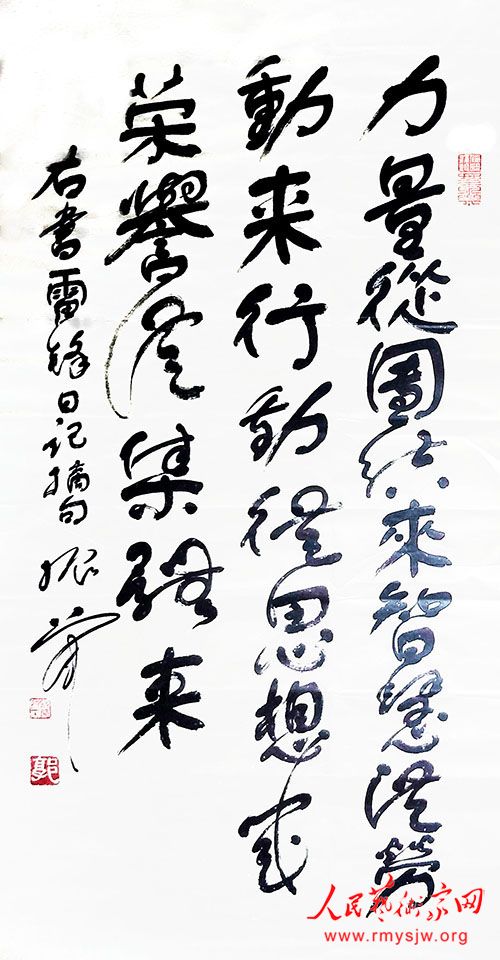 力量從團結來智慧從勞
動来行動從思想来
荣譽從集體来
右書雷鋒日记摘句 振
郭
人民藝術家网
www.rmysjw.org